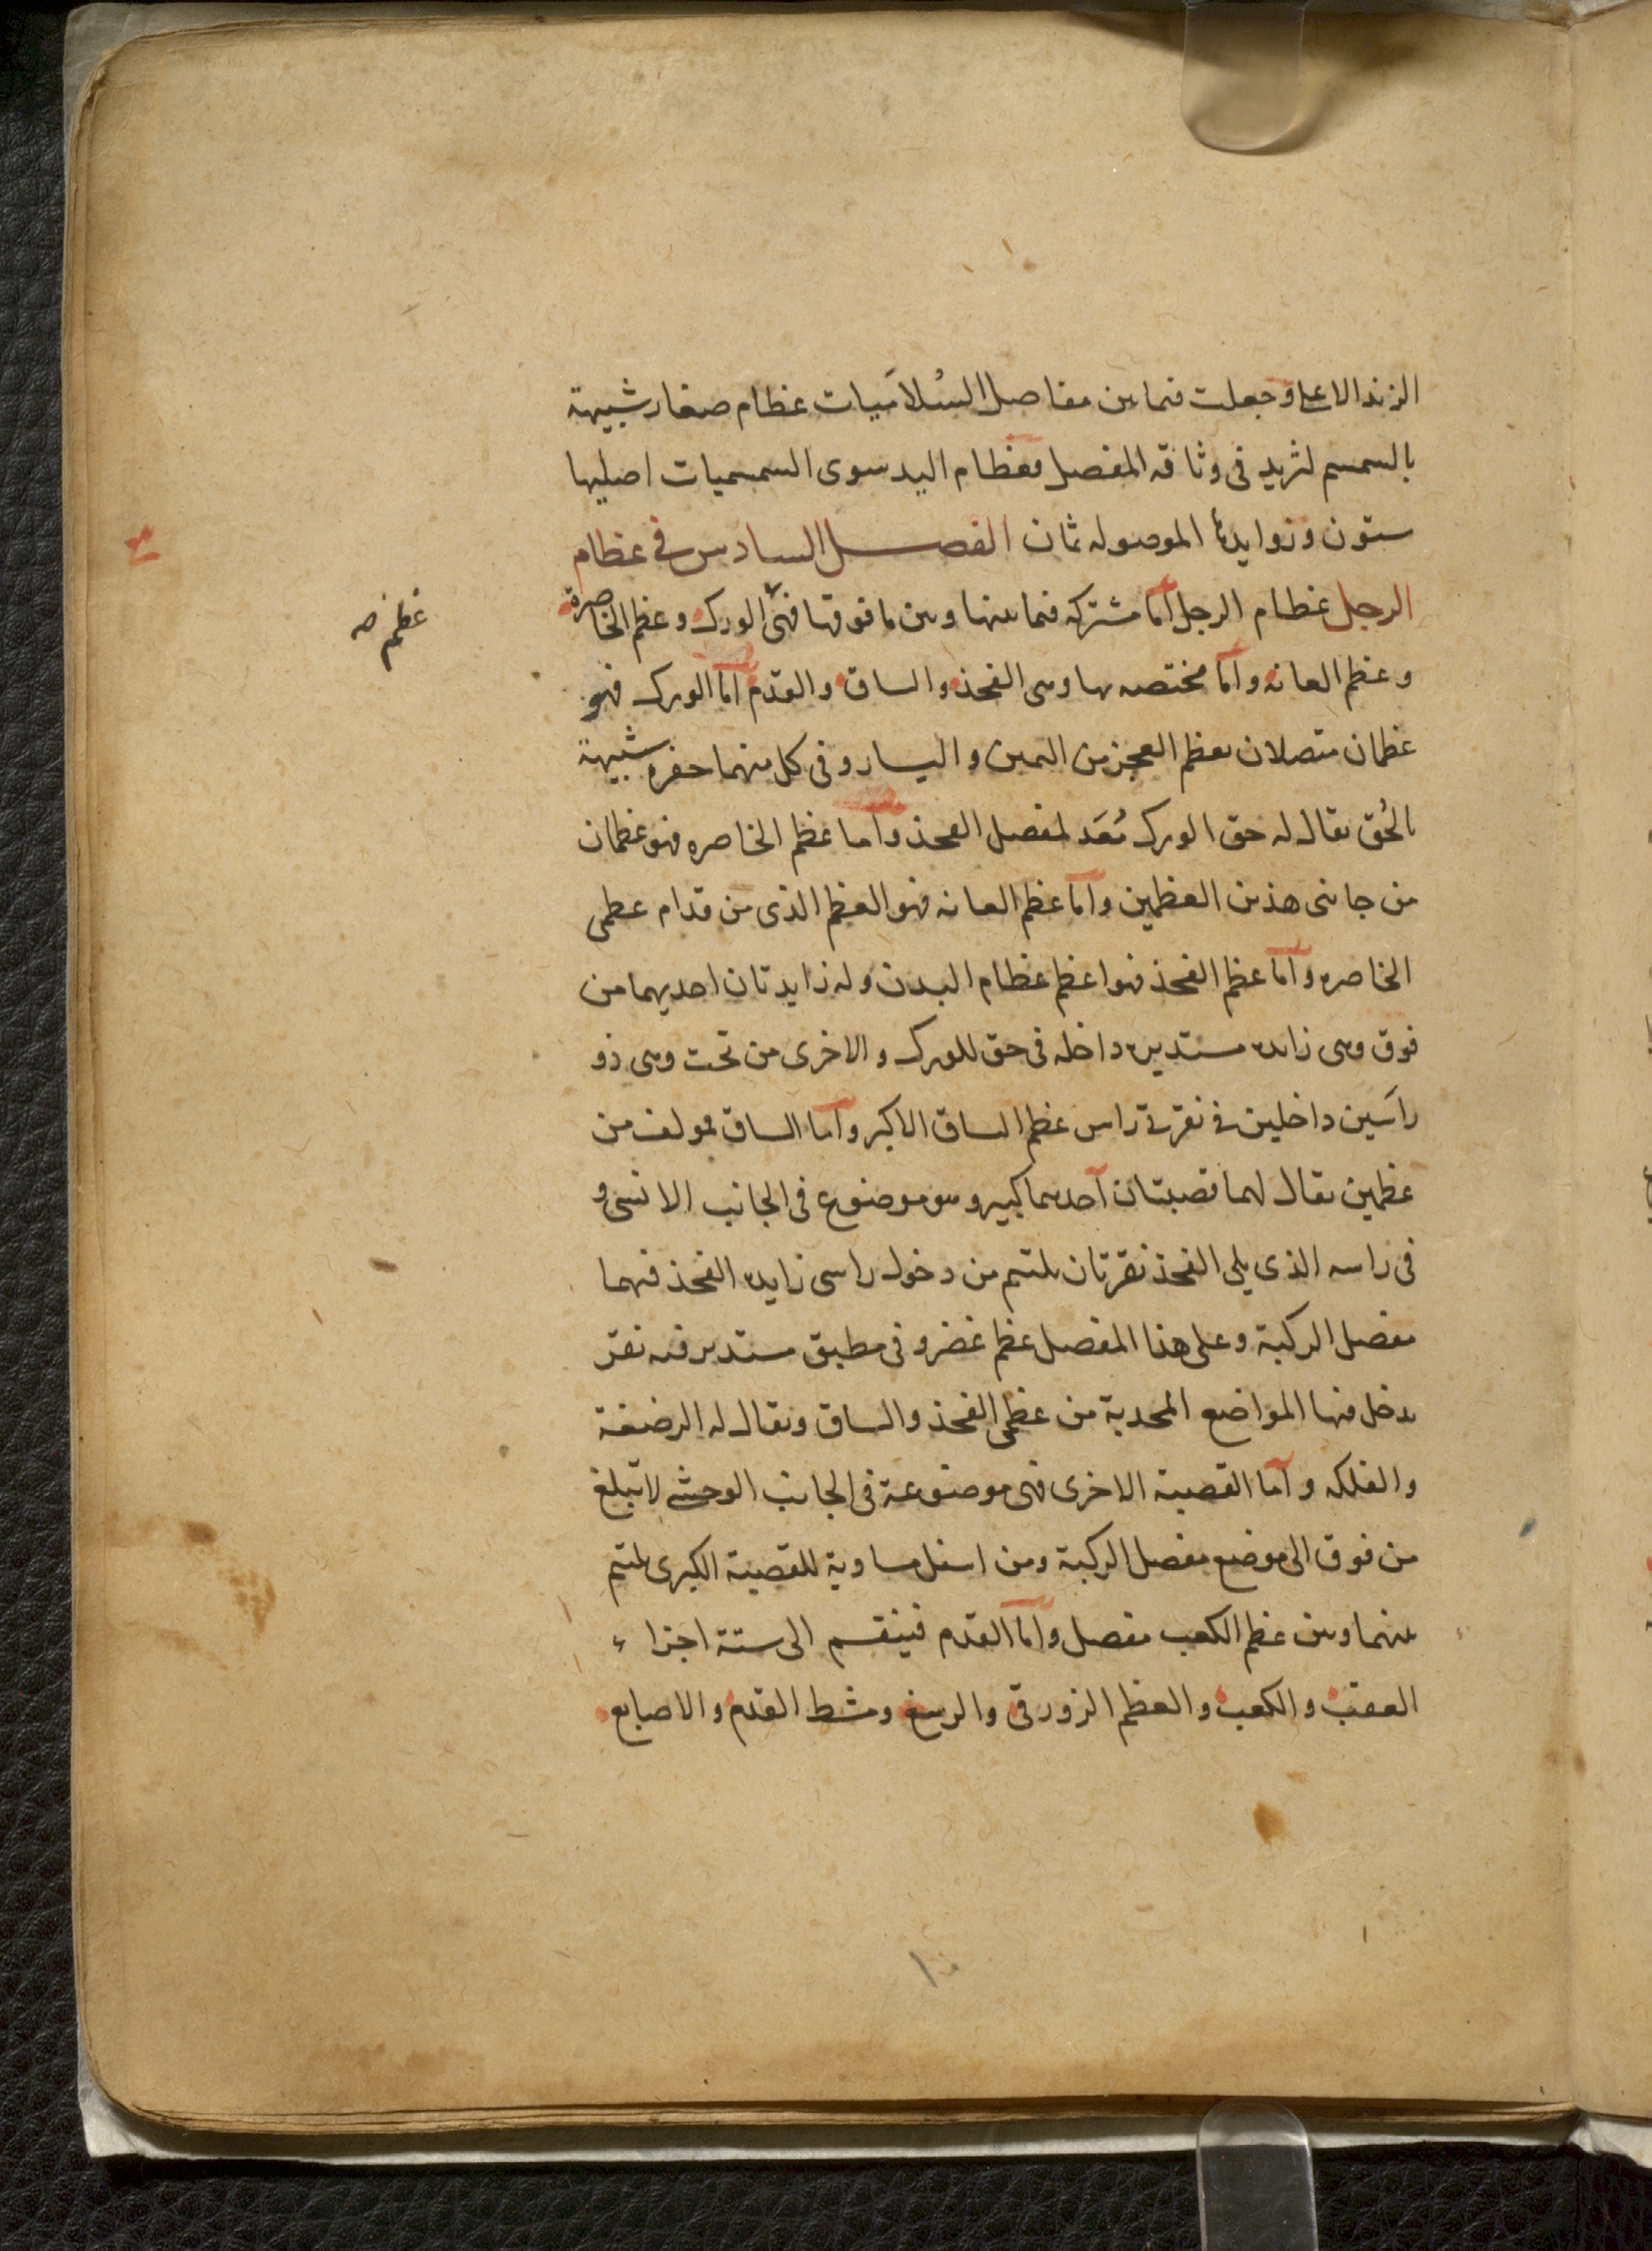 الزند الاعلى وجعلت فيما بين مفاصل السُلامَيات عظام صغار شبيهة
بالسمسم لتزيد فى وثاقه المفصل فعظام اليد سوى السمسميات اصليها
ستون وزوايدها الموصوله ثمان الفصل السادس فى عظام
الرجل عظام الرجل اما مشتركه فيما بينها وبين ما فوقها فهى الورك وعظم الخاصرة
عظم صه
وعظم العانه واما مختصه بها وهى الفخذ والساق والقدم اما الورك فهو
عظمان متصلان بعظم العجز من اليمين واليسار وفى كل منهما حفره شبيهة
بالحُق يقال له حق الورك مُعَد لمفصل الفخذ واما عظم الخاصره فهو عظمان
من جانبى هذين العظمين واما عظم العانه فهو العظم الذى من قدام عظمى
الخاصره واما عظم الفخذ فهو اعظم عظام البدن وله زايدتان احديهما من
فوق وهى زايده مستديره داخله فى حق للورك والاخرى من تحت وهى ذو
راسَين داخلين فى نقرتى راس عظم الساق الاكبر واما الساق فمولف من
عظمين يقال لهما قصبتان احدهما كبير وهو موضوع فى الجانب الانسى و
فى راسه الذى يلى الفخذ نقرتان يلتئم من دخول راسى زايده الفخذ فيهما
مفصل الركبة وعلى هذا المفصل عظم غضروفى مطبق مستدير فيه نقر
يدخل فيها المواضع المحدبة من عظمى الفخذ والساق ويقال له الرضفة
والفلكه واما القصبة الاخرى فهى موضوعة فى الجانب الوحشى لا تبلغ
من فوق الى موضع مفصل الركبة ومن اسفل مساوية للقصبة الكبرى يلتئم
بينهما وبين عظم الكعب مفصل واما القدم فينقسم الى ستة اجزاء
العقب والكعب والعظم الزورقى والرسغ ومشط القدم والاصابع